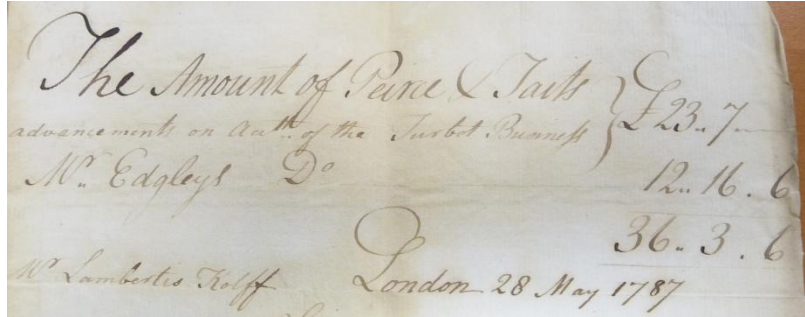 The Amount of Peirce & Taits } £23 " 7 "—
advancements on acct. of the Turbot Business
Mr. Edgleys Do 12 " 16 . 6
36 " 3 . 6
Mr Lambertis Kolff London 28 May 1787